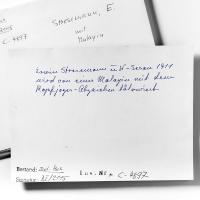 STRESEMANN, E.
mit
Malayin
C-4697
Erwin Stresemann in W-Seran 1911
wird von einer Malayin mit dem
Kopfjäger-Abzeichen tätowiert
Bestand: Zool. Mus.
Signatur:
Inv. Nr. C-4697